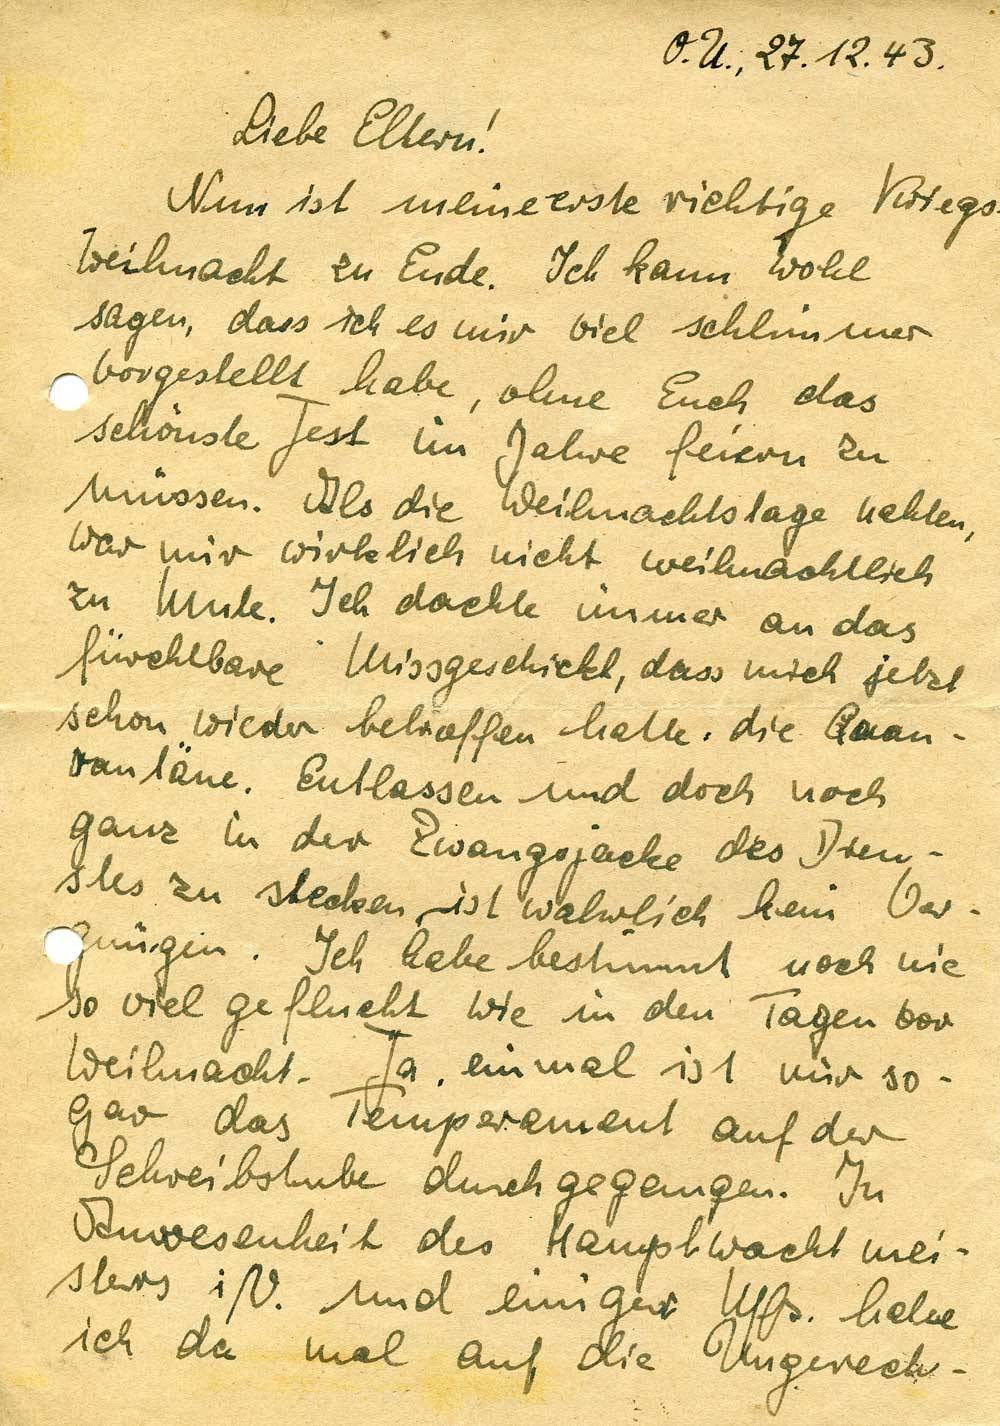 O.U., 27.12.43.
Liebe Eltern!
Nun ist meine erste richtige Kriegs-
weihnacht zu Ende. Ich kann wohl
sagen, dass ich es mir viel schlimmer
vorgestellt habe, ohne Euch das
schönste Fest im Jahre feiern zu
müssen. Als die Weihnachtstage nahten,
war mir wirklich nicht weihnachtlich
zu Mute. Ich dachte immer an das
fürchtbare Missgeschickt, dass mich jetzt
schon wieder betroffen hatte. die Quan-
rantäne. Entlassen und doch noch
ganz in der Zwangsjacke des Dien-
stes zu stecken, ist wahrlich kein Ver-
gnügen. Ich habe bestimmt noch nie
so viel geflucht wie in den Tagen vor
Weihnacht. Ja, einmal ist mir so-
gar das Temperament auf der
Schreibstube durchgegangen. In
Anwesenheit des Hauptwachtmei-
sters i/V. und einiger Uffs. habe
ich da mal auf die Ungerech-